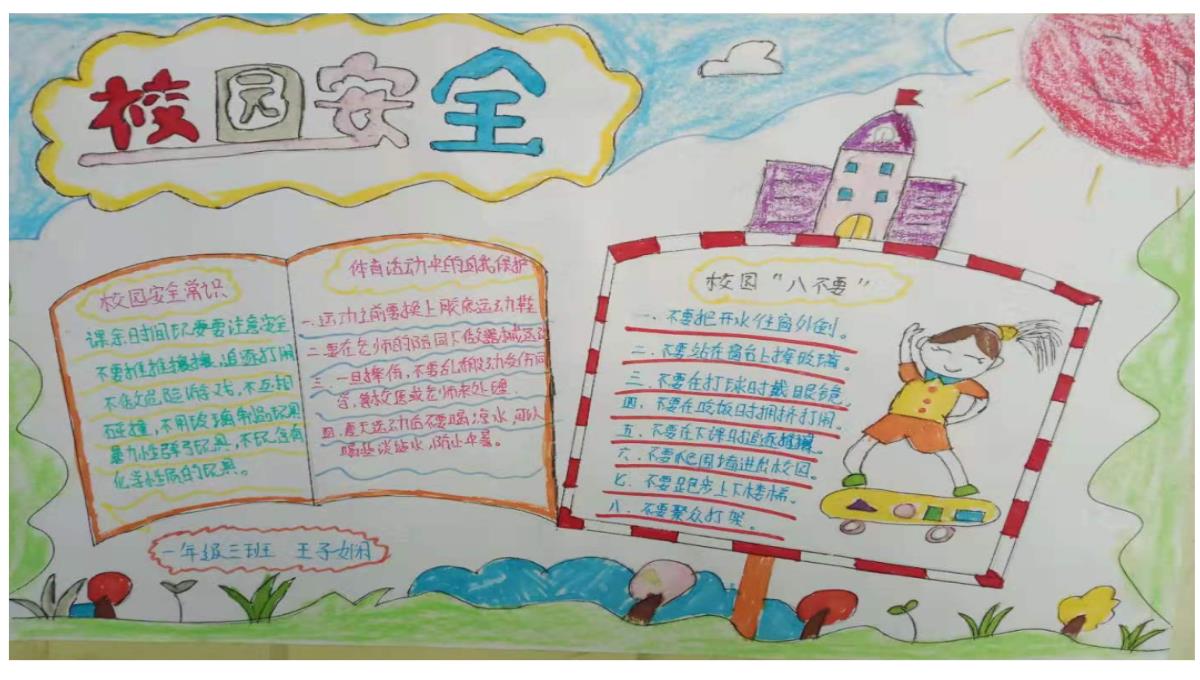 校园安全
校园安全常识
课余时间玩耍要注意安全
不要推推攘攘,追逐打闹
不做危险游戏,不互相
碰撞,不用玻璃制品玩具
暴力性弹弓玩具,不玩含有
化学性质的玩具。
体育活动中的自我保护
一.运动前要换上胶底运动鞋
二.要在老师的陪同下做器械运动
三.一旦摔伤,不要乱
等校医或老师来处理
四.夏天运动后不要喝凉水,可以
喝些淡盐水,防止中暑。
校园“八不要”
一.不要把开水往窗外倒。
二.不要站在窗台上擦玻璃。
三.不要在打球时戴眼镜。
四.不要在吃饭时拥挤打闹。
五.不要在下课时追逐推攘。
六.不要爬围墙进出校园。
七.不要跑步上下楼梯。
八.不要聚众打架。
一年级三班 王子娴